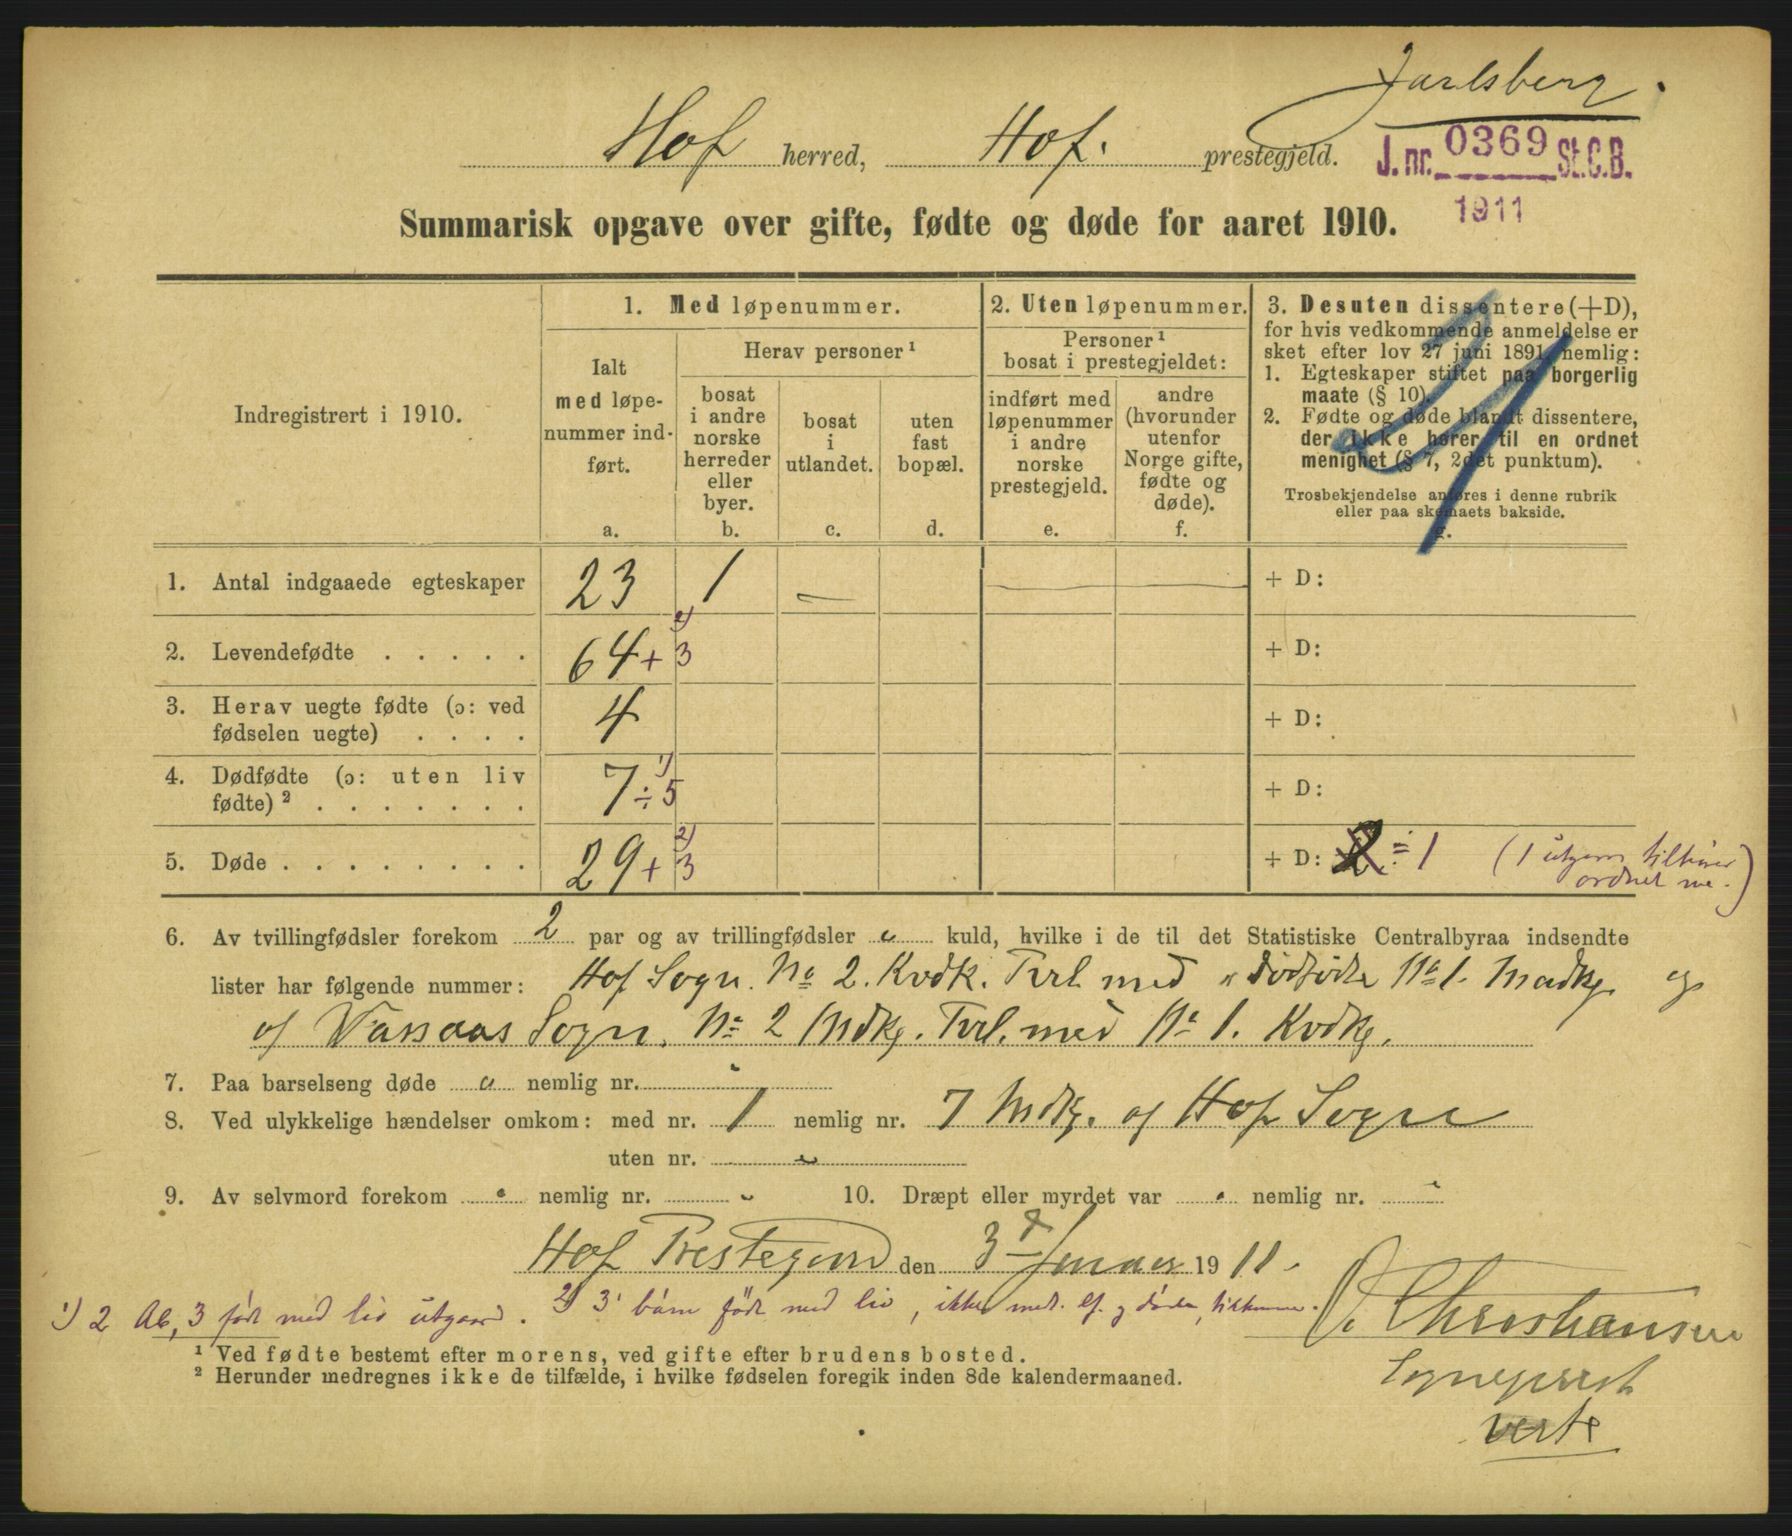 Jarlsberg.
Hof herred, Hof. prestegjeld.
J. nr. 0369 St.C.B.
1911
Summarisk opgave over gifte, fødte og døde for aaret 1910.
Indregistrert i 1910.
1. Med løpenummer.
Ialt med løpenummer indført.
a.
Herav personer ¹
bosat i andre norske herreder eller byer.
b.
bosat i utlandet.
c.
uten fast bopæl.
d.
2. Uten løpenummer.
Personer ¹ bosat i prestegjeldet:
indført med løpenummer i andre norske prestegjeld.
e.
andre (hvorunder utenfor Norge gifte, fødte og døde).
f.
3. Desuten dissentere (+D),
for hvis vedkommende anmeldelse er
sket efter lov 27 juni 1891, nemlig:
1. Egteskaper stiftet paa borgerlig
maate (§ 10).
2. Fødte og døde blandt dissentere,
der ikke hører til en ordnet
menighet (§ 7, 2det punktum).
Trosbekjendelse anføres i denne rubrik
eller paa skemaets bakside.
g.
1. Antal indgaaede egteskaper 23 1 — + D:
2. Levendefødte . . . . . 64 + 3 2) + D:
3. Herav uegte fødte (ɔ: ved
fødselen uegte) . . . . 4 + D:
4. Dødfødte (ɔ: uten liv
fødte) ² . . . . . . . 7 ÷ 5 1) + D:
5. Døde . . . . . . . . 29 + 3 2) + D: 2 = 1 (1 utgaar, tilhører
ordnet me.)
6. Av tvillingfødsler forekom 2 par og av trillingfødsler " kuld, hvilke i de til det Statistiske Centralbyraa indsendte
lister har følgende nummer: Hof Sogn. No 2. Kvdk. Tvl. med " dødfødte No 1. Mandkj. og
af Vassaas Sogn. No 2 Mdkj. Tvl. med No 1. Kvdkj.
7. Paa barselseng døde " nemlig nr. "
8. Ved ulykkelige hændelser omkom: med nr. 1 nemlig nr. 7 Mdkj. af Hof Sogn
uten nr. "
9. Av selvmord forekom " nemlig nr. " 10. Dræpt eller myrdet var " nemlig nr. "
Hof Prestegaard den 3d Januar 1911.
O. Christiansen
1) 2 Ab, 3 født med liv utgaard. 2) 3 børn født med liv, ikke medt. lf. og døde, tilkommer.
¹ Ved fødte bestemt efter morens, ved gifte efter brudens bosted.
Sogneprest
² Herunder medregnes ikke de tilfælde, i hvilke fødselen foregik inden 8de kalendermaaned.
verte